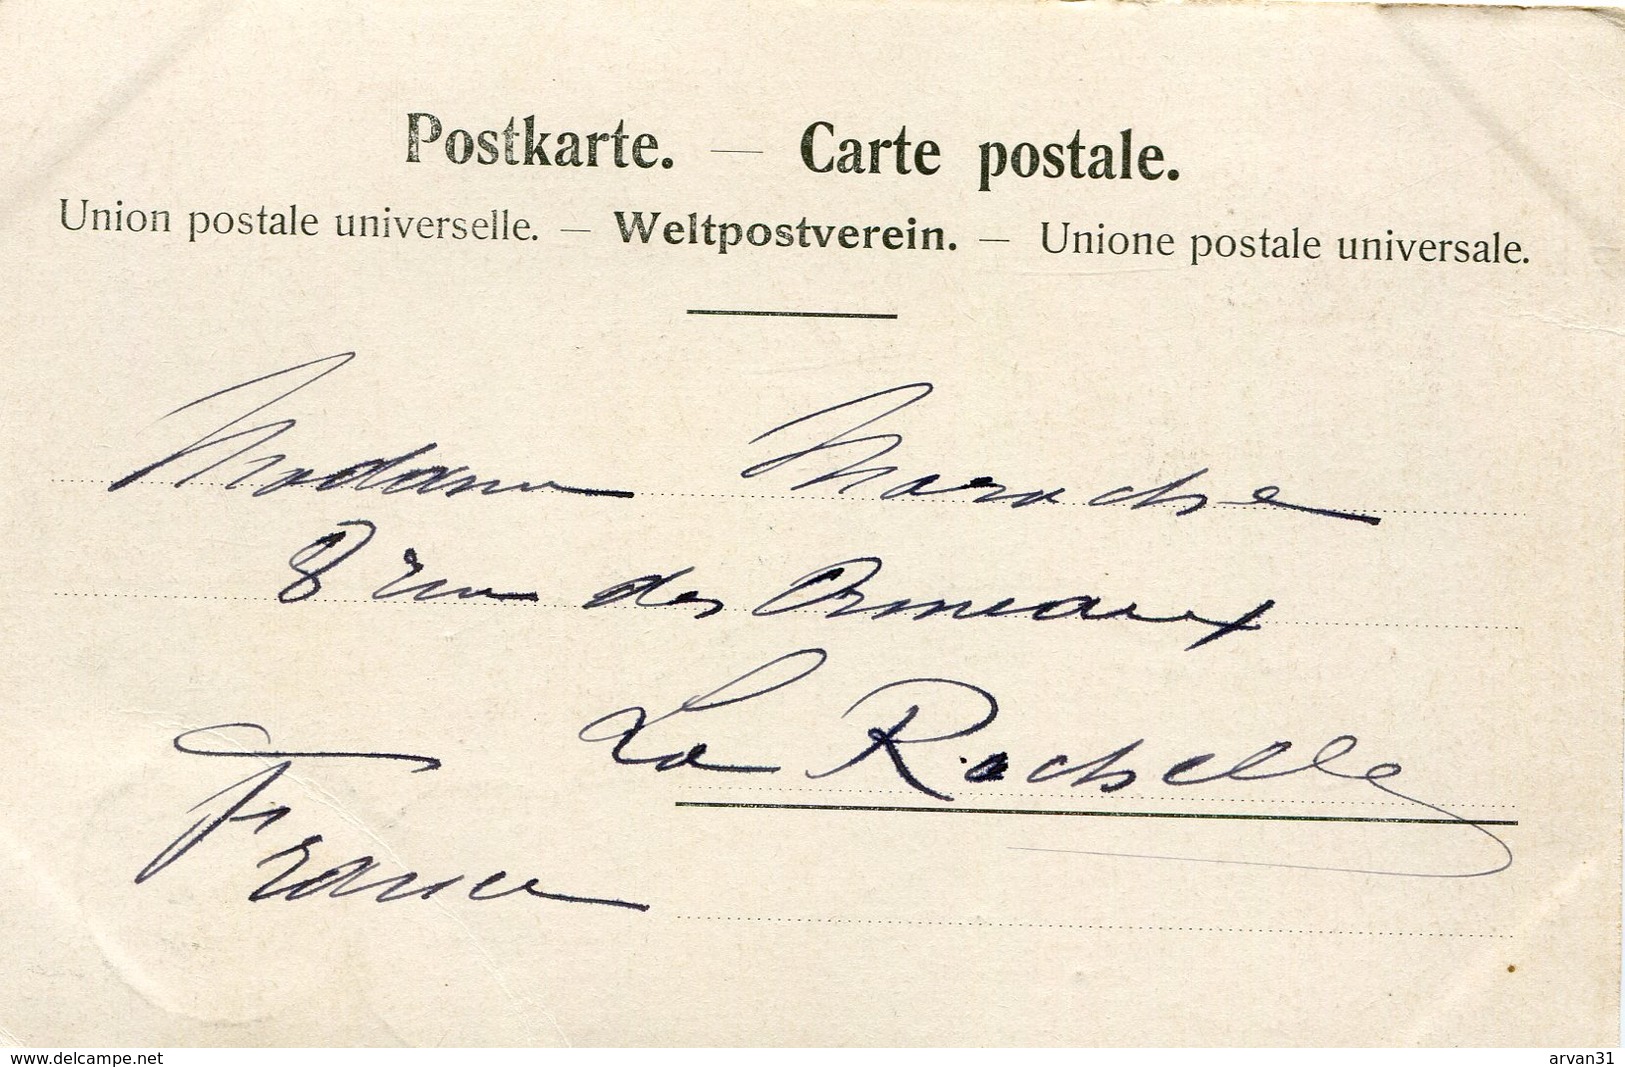 Postkarte. — Carte postale.
Union postale universelle. — Weltpostverein. — Unione postale universale.
Madame Marache
8 rue des Ormeaux
La Rochelle
France
www.delcampe.net
arvan31